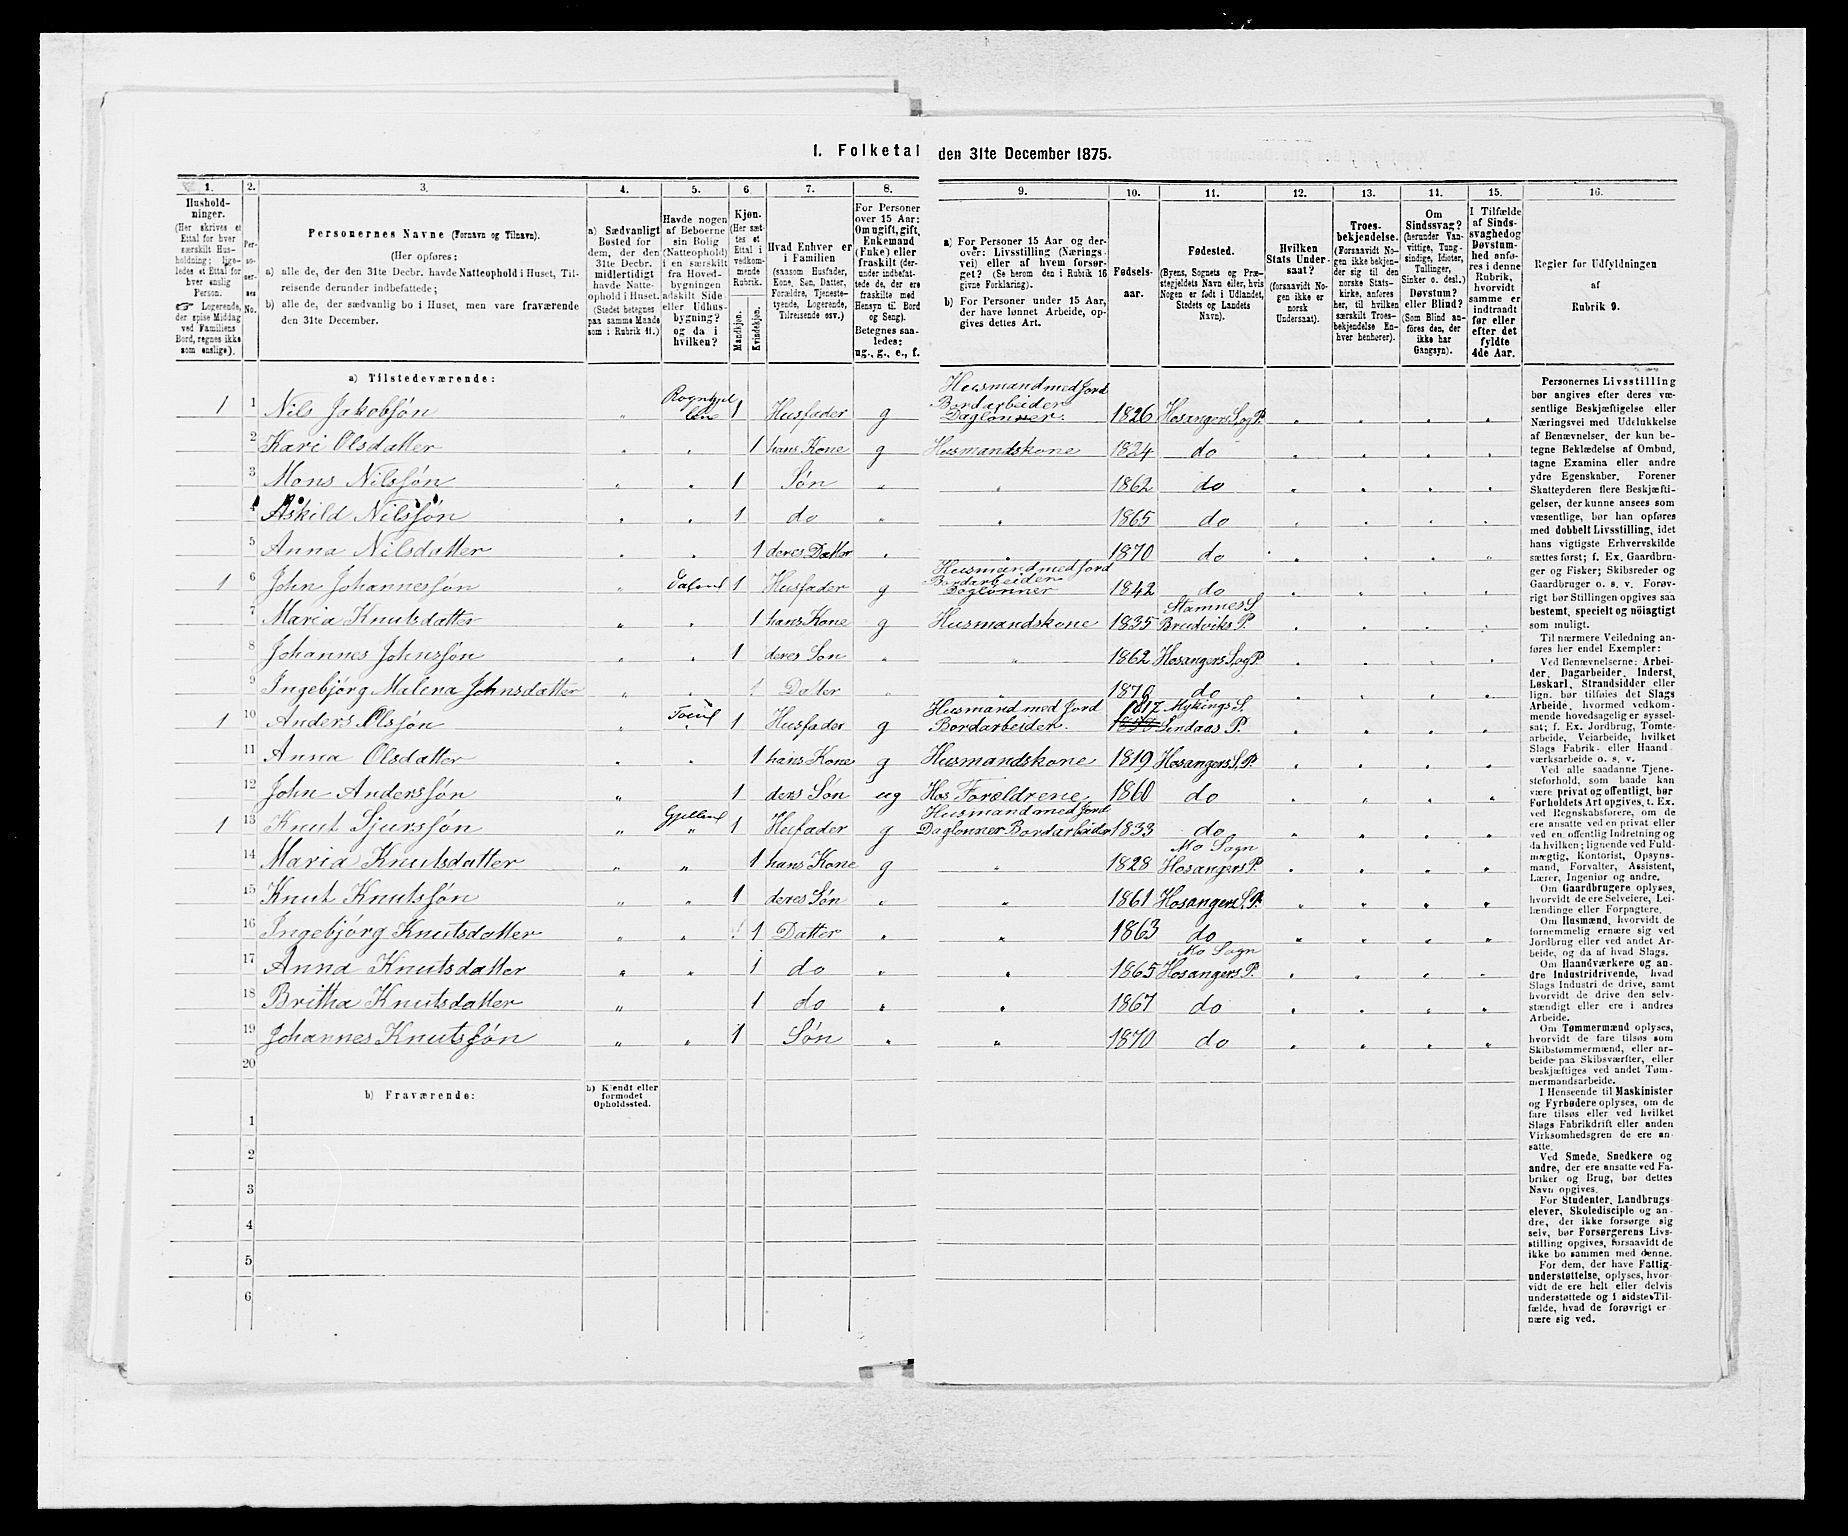 I. Folketal den 31te December 1875.
1. 2. 3. 4. 5. 6. 7. 8. 9. 10. 11. 12. 13. 11. 15. 16.
Husholdninger.
(Her skrives et
Ettal for hver
særskilt Husholdning; ligeledes et Ettal for
hver enslig
Person.
Logerende,
der spise Middag
ved Familiens
Bord, regnes ikke
som enslige).
Personernes No.
Personernes Navne (Fornavn og Tilnavn).
(Her opføres:
a) alle de, der den 31te Decbr. havde Natteophold i Huset, Tilreisende derunder indbefattede;
b) alle de, der sædvanlig bo i Huset, men vare fraværende
den 31te December.
a) Sædvanligt
Bosted for
dem, der den
31te Decbr.
midlertidigt
havde Natteophold i Huset.
(Stedet betegnes
paa samme Maade
som i Rubrik 11.)
Havde nogen
af Beboerne
sin Bolig
(Natteophold)
i en særskilt
fra Hovedbygningen
adskilt Side
eller Udhusbygning?
og da i
hvilken?
Kjøn.
(Her sættes et
Ettal i
vedkommende
Rubrik.
Mandkjøn.
Kvindekjøn.
Hvad Enhver er
i Familien
(saasom Husfader,
Kone, Søn, Datter,
Forældre, Tjenestetyende, Logerende,
Tilreisende osv.)
For Personer
over 15 Aar:
Om ugift, gift,
Enkemand
(Enke) eller
fraskilt (derunder indbefattede de, der ere
fraskilte med
Hensyn til Bord
og Seng).
Betegnes saaledes:
ug., g., e., f.
a) For Personer 15 Aar og derover: Livsstilling (Næringsvei) eller af hvem forsørget? (Se herom den i Rubrik 16
givne Forklaring).
b) For Personer under 15 Aar,
der have lønnet Arbeide, opgives dettes Art.
Fødselsaar.
Fødested.
(Byens, Sognets og Præstegjeldets Navn eller, hvis
Nogen er født i Udlandet,
Stedets og Landets
Navn).
Hvilken
Stats Undersaat?
(forsaavidt Nogen ikke er
norsk
Undersaat).
Troesbekjendelse.
(Forsaavidt Nogen ikke bekjender sig til den
norske Statskirke, anføres
her, til hvilken
særskilt Troesbekjendelse Enhver henhører).
Om
Sindssvag?
(herunder Vanvittige, Tungsindige, Idioter,
Tullinger,
Sinker o. desl.)
Døvstum?
eller Blind?
(Som Blind anføres den, der
ikke har
Gangsyn).
I Tilfælde
af Sindssvaghed og
Døvstumhed anføres i denne
Rubrik,
hvorvidt
samme er
indtraadt
før eller
efter det
fyldte
4de Aar.
Regler for Udfyldningen
af
Rubrik 9.
a) Tilstedeværende:
1 1 Nils Jakobsjøn 1 Husfader g Husmand med Jord Bordarbeider Daglønner. 1826 Hosangers S. og P.
2 Kari Olsdatter 1 hans Kone g Husmandskone 1824 do
3 Mons Nilssjøn 1 Søn 1862 do
4 Askild Nilssjøn 1 do 1865 do
5 Anna Nilsdatter 1 deres Datter 1870 do
1 6 John Johannessjøn 1 Husfader g Husmand med Jord Bordarbeider Daglønner 1842 do
7 Maria Knutsdatter 1 hans Kone g Husmandskone 1835 Stamnes S. Brudviks P.
8 Johannes Johnssjøn 1 deres Søn 1862 Hosangers S. og P.
9 Ingebjørg Malena Johnsdatter 1 Datter do
1 10 Anders Olsjøn 1 Husfader g Husmand med Jord Bordarbeider. 1817 Mykings S. Lindaas P.
11 Anna Olsdatter 1 hans Kone g Husmandskone 1819 Hosangers S. P.
12 John Anderssjøn 1 ders Søn ug Hos Forældrene 1860 do
1 13 Knut Sjurssjøn 1 Husfader g Husmand med Jord Daglønner Bordarbeider 1833 do
14 Maria Knutsdatter 1 hans Kone g 1828 Mo Sogn Hosangers P.
15 Knut Knutssjøn 1 deres Søn 1861 Hosangers S. P.
16 Ingebjørg Knutsdatter 1 Datter 1863 do
17 Anna Knutsdatter 1 do 1865 Mo Sogn Hosangers P.
18 Britha Knutsdatter 1 do 1867 do
19 Johannes Knutssjøn 1 Søn 1870 do
20
b) Fraværende:
b) Kjendt eller
formodet
Opholdssted.
1
2
3
4
5
6
Personernes Livsstilling
bør angives efter deres væsentlige Beskjæftigelse eller
Næringsvei med Udelukkelse
af Benævnelser, der kun betegne Beklædelse af Ombud,
tagne Examina eller andre
ydre Egenskaber. Forener
Skatteyderen flere Beskjæftigelser, der kunne ansees som
væsentlige, bør han opføres
med dobbelt Livsstilling, idet
hans vigtigste Erhvervskilde
sættes først; f. Ex. Gaardbruger og Fisker; Skibsreder og
Gaardbruger o. s. v. Forøvrigt bør Stillingen opgives saa
bestemt, specielt og nøiagtigt
som muligt.
Til nærmere Veiledning anføres her endel Exempler:
Ved Benævnelserne: Arbeider, Dagarbeider, Inderst,
Løskarl, Strandsidder eller
lign. bør tilføies det Slags
Arbeide, hvormed vedkommende hovedsagelig er sysselsat; f. Ex. Jordbrug, Tomtearbeide, Veiarbeide, hvilket
Slags Fabrik- eller Haandværksarbeide o. s. v.
Ved alle saadanne Tjenesteforhold, som baade kan
være privat og offentligt, bør
Forholdets Art opgives, t. Ex.
ved Regnskabsførere, om de
ere ansatte ved en privat eller
ved en offentlig Indretning og
da hvilken; lignende ved Fuldmægtig, Kontorist, Opsynsmand, Forvalter, Assistent,
Lærer, Ingeniør og andre.
Om Gaardbrugere oplyses,
hvorvidt de ere Selveiere, Leilændinge eller Forpagtere.
Om Husmænd, hvorvidt de
fornemmelig ernære sig ved
Jordbrug eller ved andet Arbeide, og da af hvad Slags.
Om Haandværkere og andre Industridrivende, hvad
Slags Industri de drive, samt
hvorvidt de drive den selvstændigt eller ere i andres
Arbeide.
Om Tømmermænd oplyses,
hvorvidt de fare tilsøs som
Skibstømmermænd, eller arbeide paa Skibsværfter, eller
beskjæftiges ved andet Tømmermandsarbeide.
I Henseende til Maskinister
og Fyrbødere oplyses, om de
fare tilsøs eller ved hvilket
Slags Fabrikdrift eller anden
Virksomhedsgren de ere ansatte.
Ved Smede, Snedkere og
andre, der ere ansatte ved Fabriker og Brug, bør dettes
Navn opgives.
For Studenter, Landbrugselever, Skoledisciple og andre, der ikke forsørge sig
selv, bør Forsørgerens Livsstilling opgives, forsaavidt de
ikke bo sammen med denne.
For dem, der have Fattigunderstøttelse, oplyses, hvorvidt de ere helt eller delvis
understøttede og i sidste Tilfælde, hvad de forøvrigt ernære sig ved.